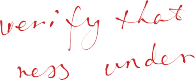 verify that
ness under